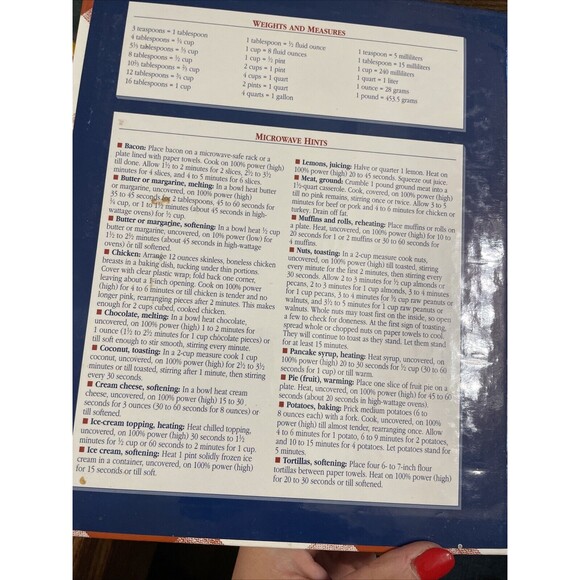 WEIGHTS AND MEASURES
3 teaspoons = 1 tablespoon
4 tablespoons = ¼ cup
5⅓ tablespoons = ⅓ cup
8 tablespoons = ½ cup
10⅔ tablespoons = ⅔ cup
12 tablespoons = ¾ cup
16 tablespoons = 1 cup
1 tablespoon = ½ fluid ounce
1 cup = 8 fluid ounces
1 cup = ½ pint
2 cups = 1 pint
4 cups = 1 quart
2 pints = 1 quart
4 quarts = 1 gallon
1 teaspoon = 5 milliliters
1 tablespoon = 15 milliliters
1 cup = 240 milliliters
1 quart = 1 liter
1 ounce = 28 grams
1 pound = 453.5 grams
MICROWAVE HINTS
■ Bacon: Place bacon on a microwave-safe rack or a
plate lined with paper towels. Cook on 100% power (high)
till done. Allow 1½ to 2 minutes for 2 slices, 2½ to 3½
minutes for 4 slices, and 4 to 5 minutes for 6 slices.
■ Butter or margarine, melting: In a bowl heat butter
or margarine, uncovered, on 100% power (high)
35 to 45 seconds for 2 tablespoons, 45 to 60 seconds for
¼ cup, or 1 to 1½ minutes (about 45 seconds in high-
wattage ovens) for ½ cup.
■ Butter or margarine, softening: In a bowl heat ½ cup
butter or margarine, uncovered, on 10% power (low) for
1½ to 2½ minutes (about 45 seconds in high-wattage
ovens) or till softened.
■ Chicken: Arrange 12 ounces skinless, boneless chicken
breasts in a baking dish, tucking under thin portions.
Cover with clear plastic wrap; fold back one corner,
leaving about a 1-inch opening. Cook on 100% power
(high) for 4 to 6 minutes or till chicken is tender and no
longer pink, rearranging pieces after 2 minutes. This makes
enough for 2 cups cubed, cooked chicken.
■ Chocolate, melting: In a bowl heat chocolate,
uncovered, on 100% power (high) 1 to 2 minutes for
1 ounce (1½ to 2½ minutes for 1 cup chocolate pieces) or
till soft enough to stir smooth, stirring every minute.
■ Coconut, toasting: In a 2-cup measure cook 1 cup
coconut, uncovered, on 100% power (high) for 2½ to 3½
minutes or till toasted, stirring after 1 minute, then stirring
every 30 seconds.
■ Cream cheese, softening: In a bowl heat cream
cheese, uncovered, on 100% power (high) 15 to 30
seconds for 3 ounces (30 to 60 seconds for 8 ounces) or
till softened.
■ Ice-cream topping, heating: Heat chilled topping,
uncovered, on 100% power (high) 30 seconds to 1½
minutes for ½ cup or 60 seconds to 2 minutes for 1 cup.
■ Ice cream, softening: Heat 1 pint solidly frozen ice
cream in a container, uncovered, on 100% power (high)
for 15 seconds or till soft.
■ Lemons, juicing: Halve or quarter 1 lemon. Heat on
100% power (high) 20 to 45 seconds. Squeeze out juice.
■ Meat, ground: Crumble 1 pound ground meat into a
1½-quart casserole. Cook, covered, on 100% power (high)
till no pink remains, stirring once or twice. Allow 3 to 5
minutes for beef or pork and 4 to 6 minutes for chicken or
turkey. Drain off fat.
■ Muffins and rolls, reheating: Place muffins or rolls on
a plate. Heat, uncovered, on 100% power (high) for 10 to
20 seconds for 1 or 2 muffins or 30 to 60 seconds for
4 muffins.
■ Nuts, toasting: In a 2-cup measure cook nuts,
uncovered, on 100% power (high) till toasted, stirring
every minute for the first 2 minutes, then stirring every
30 seconds. Allow 2 to 3 minutes for ½ cup almonds or
pecans, 2 to 3 minutes for 1 cup almonds, 3 to 4 minutes
for 1 cup pecans, 3 to 4 minutes for ½ cup raw peanuts or
walnuts, and 3½ to 5 minutes for 1 cup raw peanuts or
walnuts. Whole nuts may toast first on the inside, so open
a few to check for doneness. At the first sign of toasting,
spread whole or chopped nuts on paper towels to cool.
They will continue to toast as they stand. Let them stand
for at least 15 minutes.
■ Pancake syrup, heating: Heat syrup, uncovered, on
100% power (high) 20 to 30 seconds for ½ cup (30 to 60
seconds for 1 cup) or till warm.
■ Pie (fruit), warming: Place one slice of fruit pie on a
plate. Heat, uncovered, on 100% power (high) for 45 to 60
seconds (about 20 seconds in high-wattage ovens).
■ Potatoes, baking: Prick medium potatoes (6 to
8 ounces each) with a fork. Cook, uncovered, on 100%
power (high) till almost tender, rearranging once. Allow
4 to 6 minutes for 1 potato, 6 to 9 minutes for 2 potatoes,
and 10 to 15 minutes for 4 potatoes. Let potatoes stand for
5 minutes.
■ Tortillas, softening: Place four 6- to 7-inch flour
tortillas between paper towels. Heat on 100% power (high)
for 20 to 30 seconds or till softened.